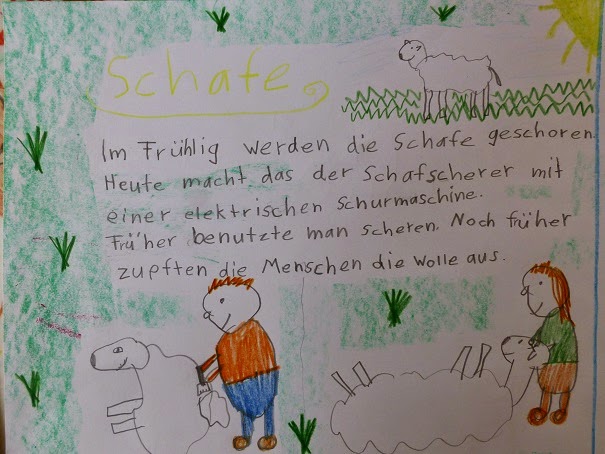 Schafe
Im Frühlig werden die Schafe geschoren.
Heute macht das der Schafscherer mit
einer elektrischen Schurmaschine.
Früher benutzte man scheren. Noch früher
zupften die Menschen die Wolle aus.